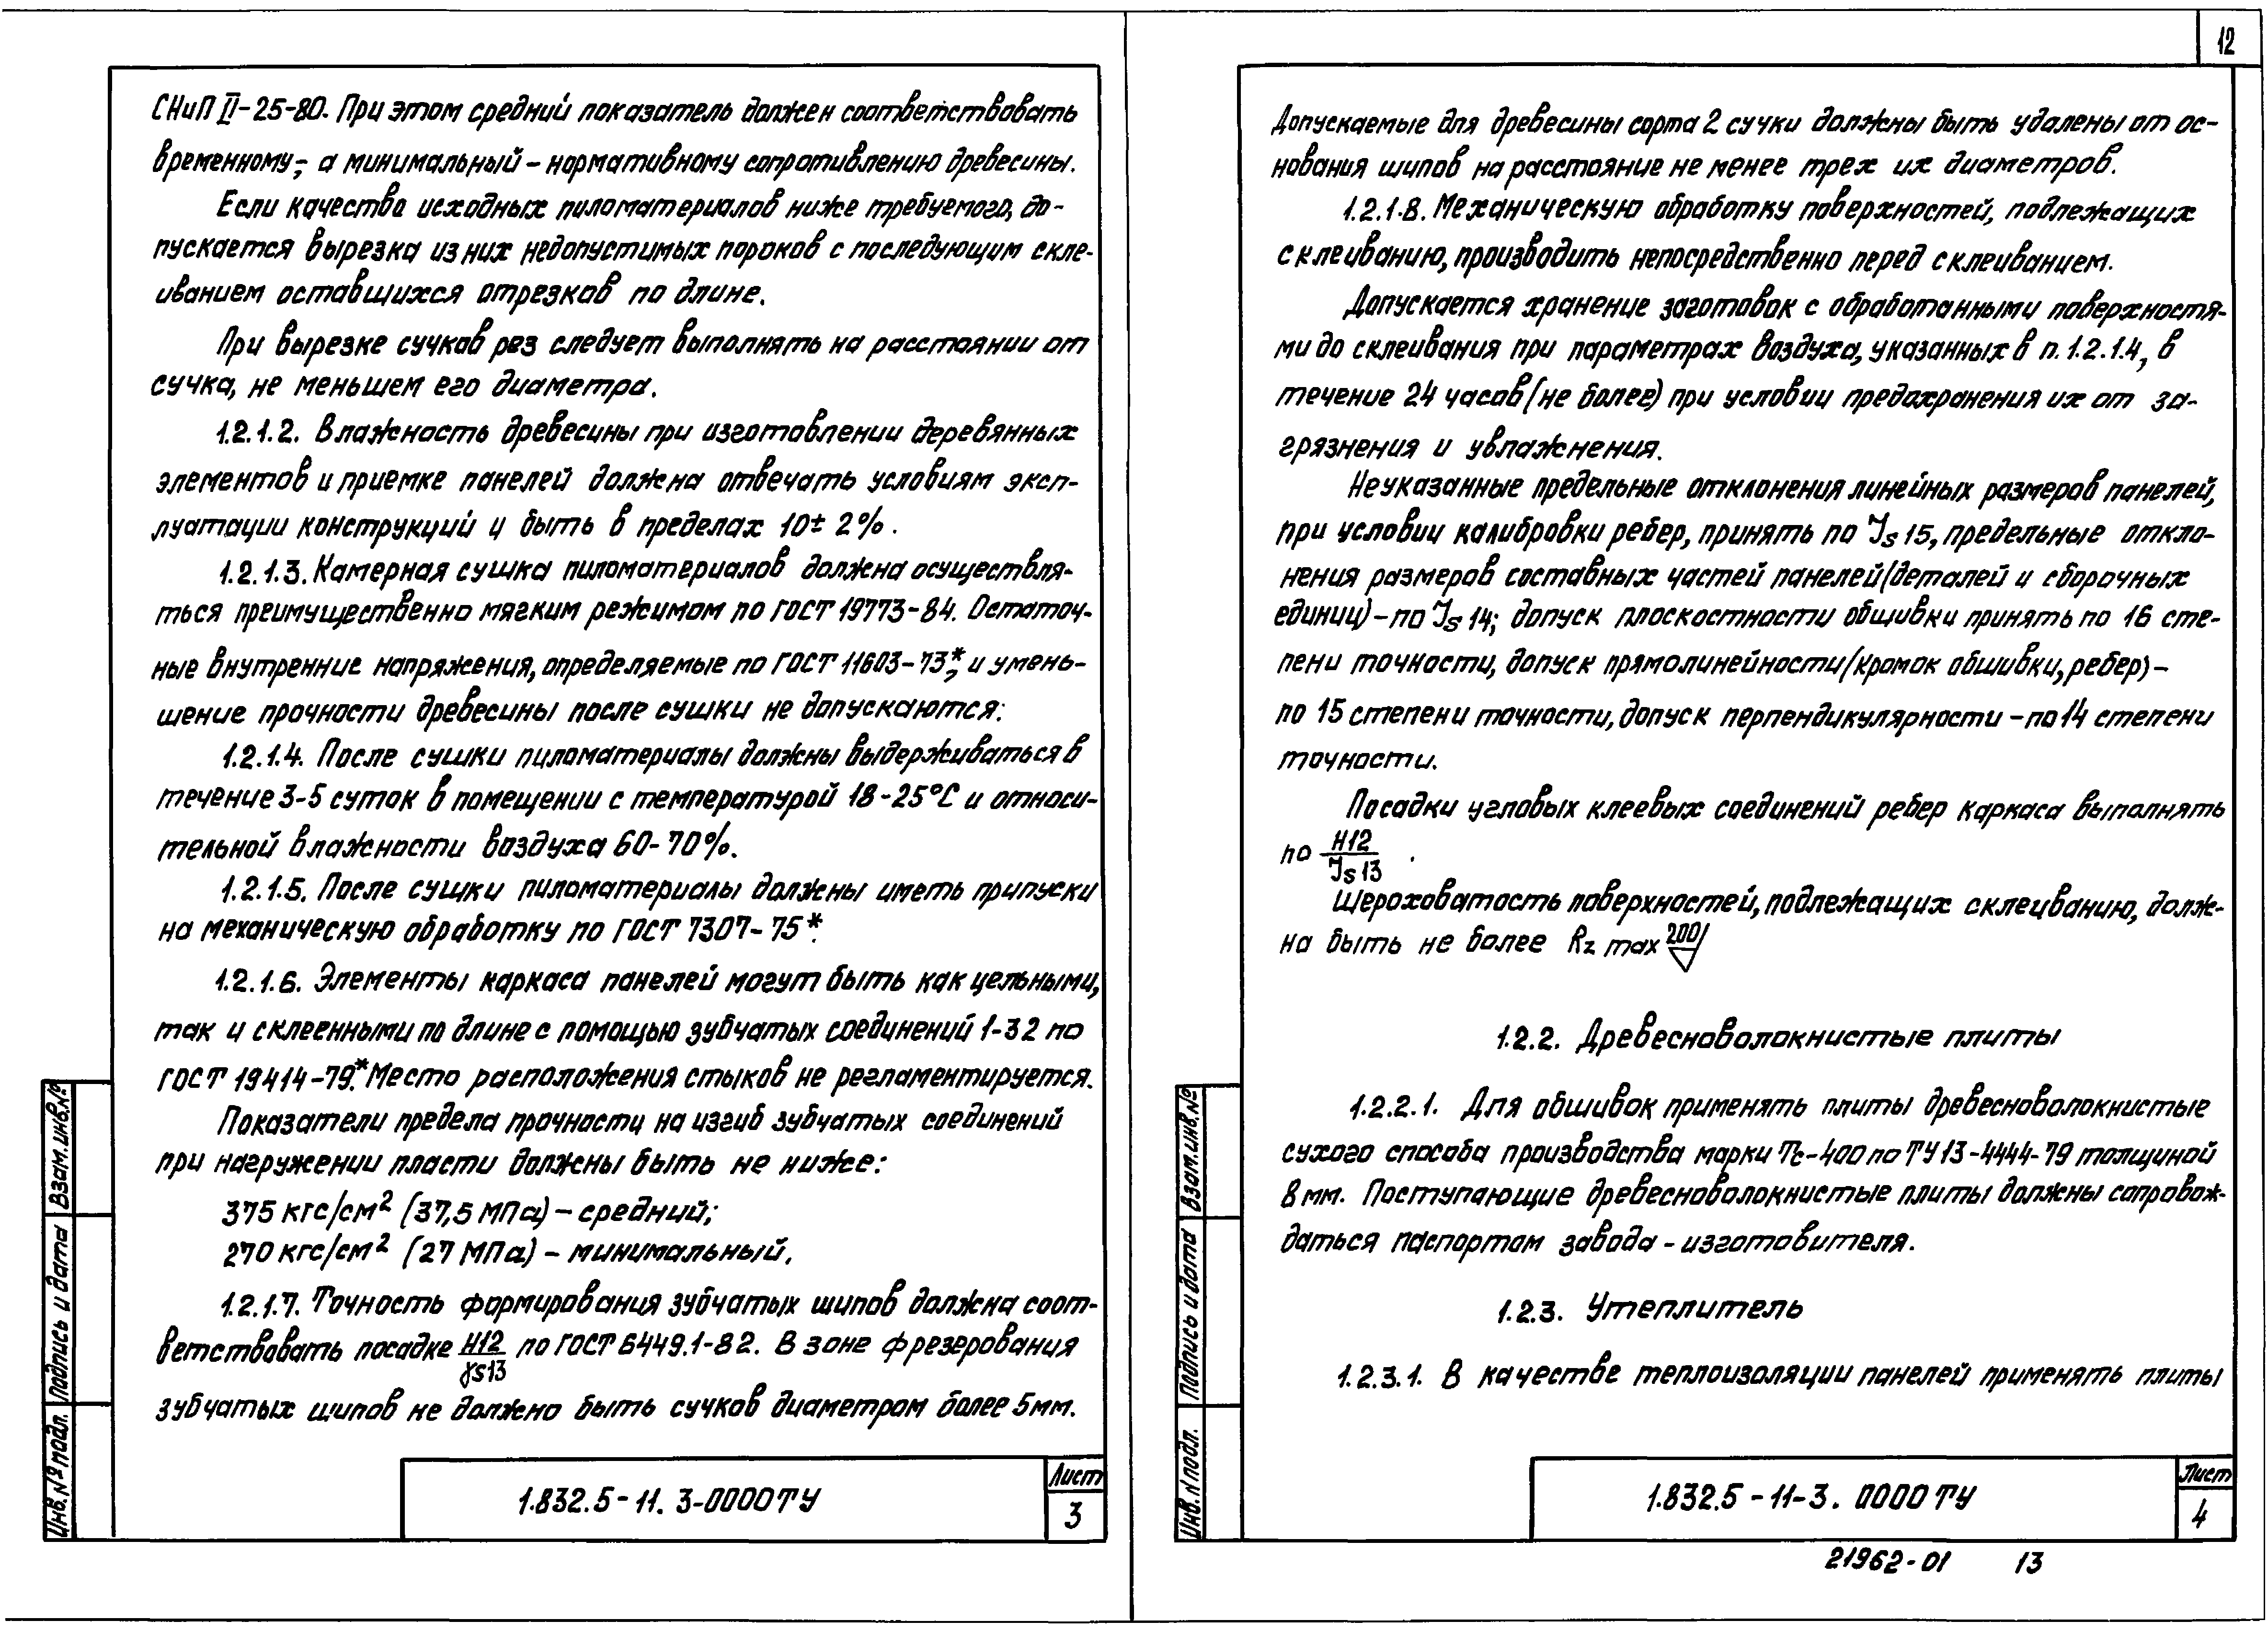 СНиП II-25-80. При этом средний показатель должен соответствовать
временному,- а минимальный – нормативному сопротивлению древесины.
Если качество исходных пиломатериалов ниже требуемого, до-
пускается вырезка из них недопустимых пороков с последующим скле-
иванием оставшихся отрезков по длине.
При вырезке сучков рез следует выполнять на расстоянии от
сучка, не меньшем его диаметра.
1.2.1.2. Влажность древесины при изготовлении деревянных
элементов и приемке панелей должна отвечать условиям эксп-
луатации конструкций и быть в пределах 10± 2%.
1.2.1.3. Камерная сушка пиломатериалов должна осуществля-
ться преимущественно мягким режимом по ГОСТ 19773-84. Остаточ-
ные внутренние напряжения, определяемые по ГОСТ 11603-73*, и умень-
шение прочности древесины после сушки не допускаются.
1.2.1.4. После сушки пиломатериалы должны выдерживаться в
течение 3-5 суток в помещении с температурой 18-25°С и относи-
тельной влажности воздуха 60-70%.
1.2.1.5. После сушки пиломатериалы должны иметь припуски
на механическую обработку по ГОСТ 7307-75*.
1.2.1.6. Элементы каркаса панелей могут быть как цельными,
так и склеенными по длине с помощью зубчатых соединений 1-32 по
ГОСТ 19414-79*. Место расположения стыков не регламентируется.
Показатели предела прочности на изгиб зубчатых соединений
при нагружении пласти должны быть не ниже:
375 кгс/см² (37,5 МПа) – средний;
270 кгс/см² (27 МПа) – минимальный.
1.2.1.7. Точность формирования зубчатых шипов должна соот-
ветствовать посадке H12/γs13 по ГОСТ 6449.1-82. В зоне фрезерования
зубчатых шипов не должно быть сучков диаметром более 5мм.
Взам. инв.№
Подпись и дата
Инв. № подл.
1.832.5-11. 3-0000ТУ
Лист
3
12
Допускаемые для древесины сорта 2 сучки должны быть удалены от ос-
нования шипов на расстояние не менее трех их диаметров.
1.2.1.8. Механическую обработку поверхностей, подлежащих
склеиванию, производить непосредственно перед склеиванием.
Допускается хранение заготовок с обработанными поверхностя-
ми до склеивания при параметрах воздуха, указанных в п. 1.2.1.4, в
течение 24 часов (не более) при условии предохранения их от за-
грязнения и увлажнения.
Неуказанные предельные отклонения линейных размеров панелей,
при условии калибровки ребер, принять по Js 15, предельные откло-
нения размеров составных частей панелей (деталей и сборочных
единиц) – по Js 14; допуск плоскостности обшивки принять по 16 сте-
пени точности, допуск прямолинейности (кромок обшивки, ребер) –
по 15 степени точности, допуск перпендикулярности – по 14 степени
точности.
Посадки угловых клеевых соединений ребер каркаса выполнять
по H12/Js13 .
Шероховатость поверхностей, подлежащих склеиванию, долж-
на быть не более Rz max 200/
1.2.2. Древесноволокнистые плиты
1.2.2.1. Для обшивок применять плиты древесноволокнистые
сухого способа производства марки Тс-400 по ТУ 13-4444-79 толщиной
8 мм. Поступающие древесноволокнистые плиты должны сопровож-
даться паспортом завода – изготовителя.
1.2.3. Утеплитель
1.2.3.1. В качестве теплоизоляции панелей применять плиты
Взам. инв.№
Подпись и дата
Инв. N подл.
1.832.5-11-3. 0000 ТУ
Лист
4
21962-01 13